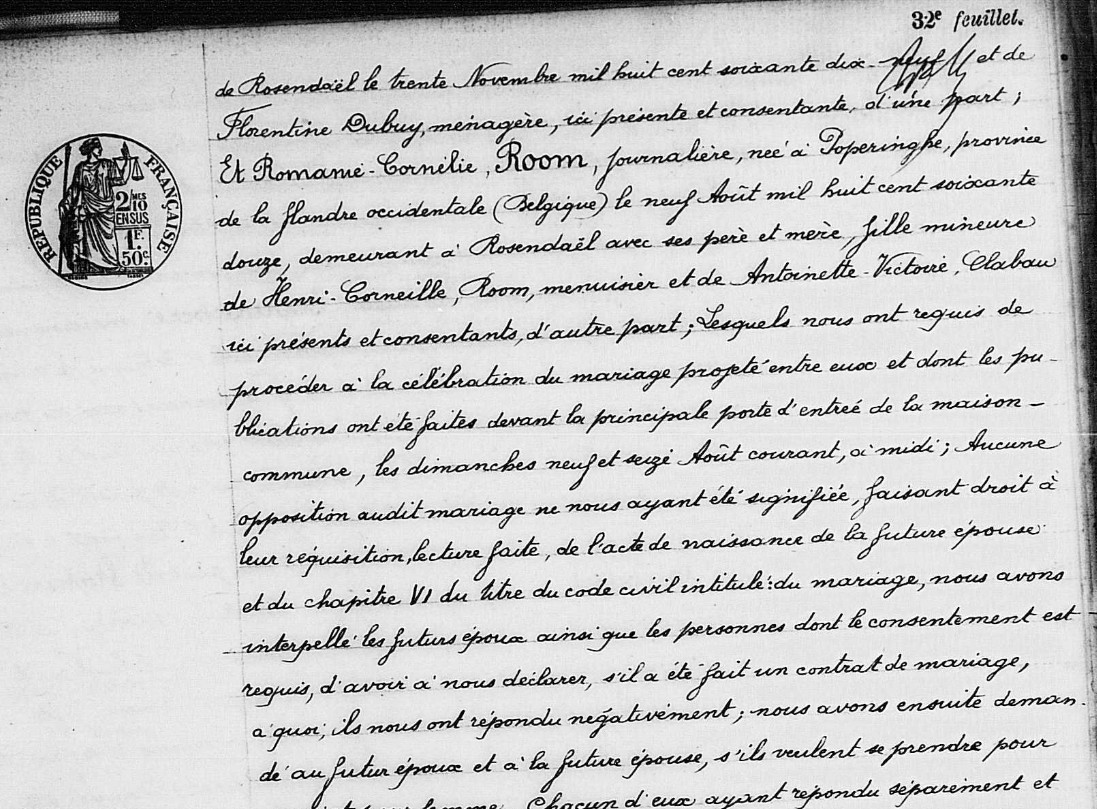 32e feuillet.
de Rosendaël le trente Novembre mil huit cent soixante dix-neuf et de
Florentine Dubuy, ménagère, ici présente et consentante, d'une part;
Et Romanie-Cornélie, Room, journalière, née à Poperinghe, province
de la flandre occidentale (Belgique) le neuf Août mil huit cent soixante
douze, demeurant à Rosendaël avec ses père et mère, fille mineure
de Henri-Corneille, Room, menuisier et de Antoinette-Victoire, Clabau
ici présents et consentants, d'autre part; Lesquels nous ont requis de
procéder à la célébration du mariage projeté entre eux et dont les pu-
blications ont été faites devant la principale porte d'entrée de la maison-
commune, les dimanches neuf et seize Août courant, à midi; Aucune
opposition audit mariage ne nous ayant été signifiée, faisant droit à
leur réquisition, lecture faite, de l'acte de naissance de la future épouse
et du chapitre VI du titre du code civil intitulé: du mariage, nous avons
interpellé les futurs époux ainsi que les personnes dont le consentement est
requis, d'avoir à nous déclarer, s'il a été fait un contrat de mariage,
à quoi, ils nous ont répondu négativement; nous avons ensuite deman-
dé au futur époux et à la future épouse, s'ils veulent se prendre pour
femme, Chacun d'eux ayant répondu séparément et
RÉPUBLIQUE FRANÇAISE
2/10 MES
EN SUS
1F.
50c.